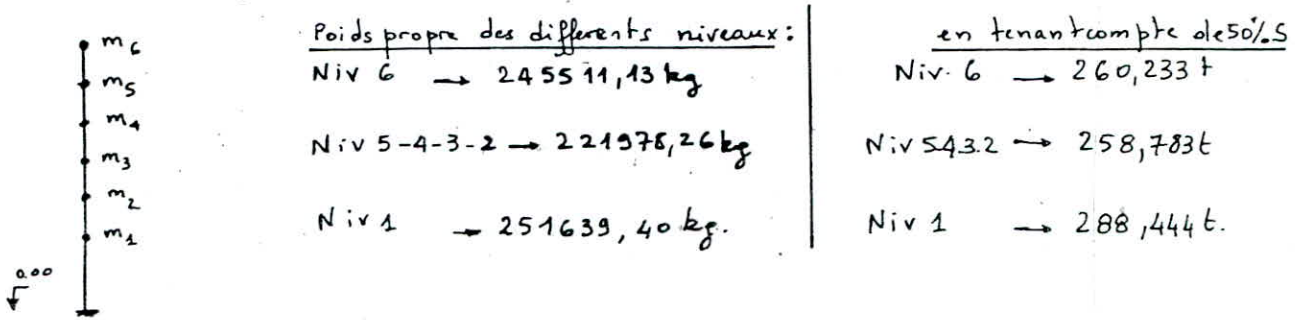 m6
m5
m4
m3
m2
m1
0.00
Poids propre des differents niveaux :
Niv 6 → 245511,13 kg
Niv 5-4-3-2 → 221978,26 kg
Niv 1 → 251639,40 kg.
en tenant compte de 50%.S
Niv. 6 → 260,233 t
Niv 5.4.3.2 → 258,783t
Niv 1 → 288,444 t.